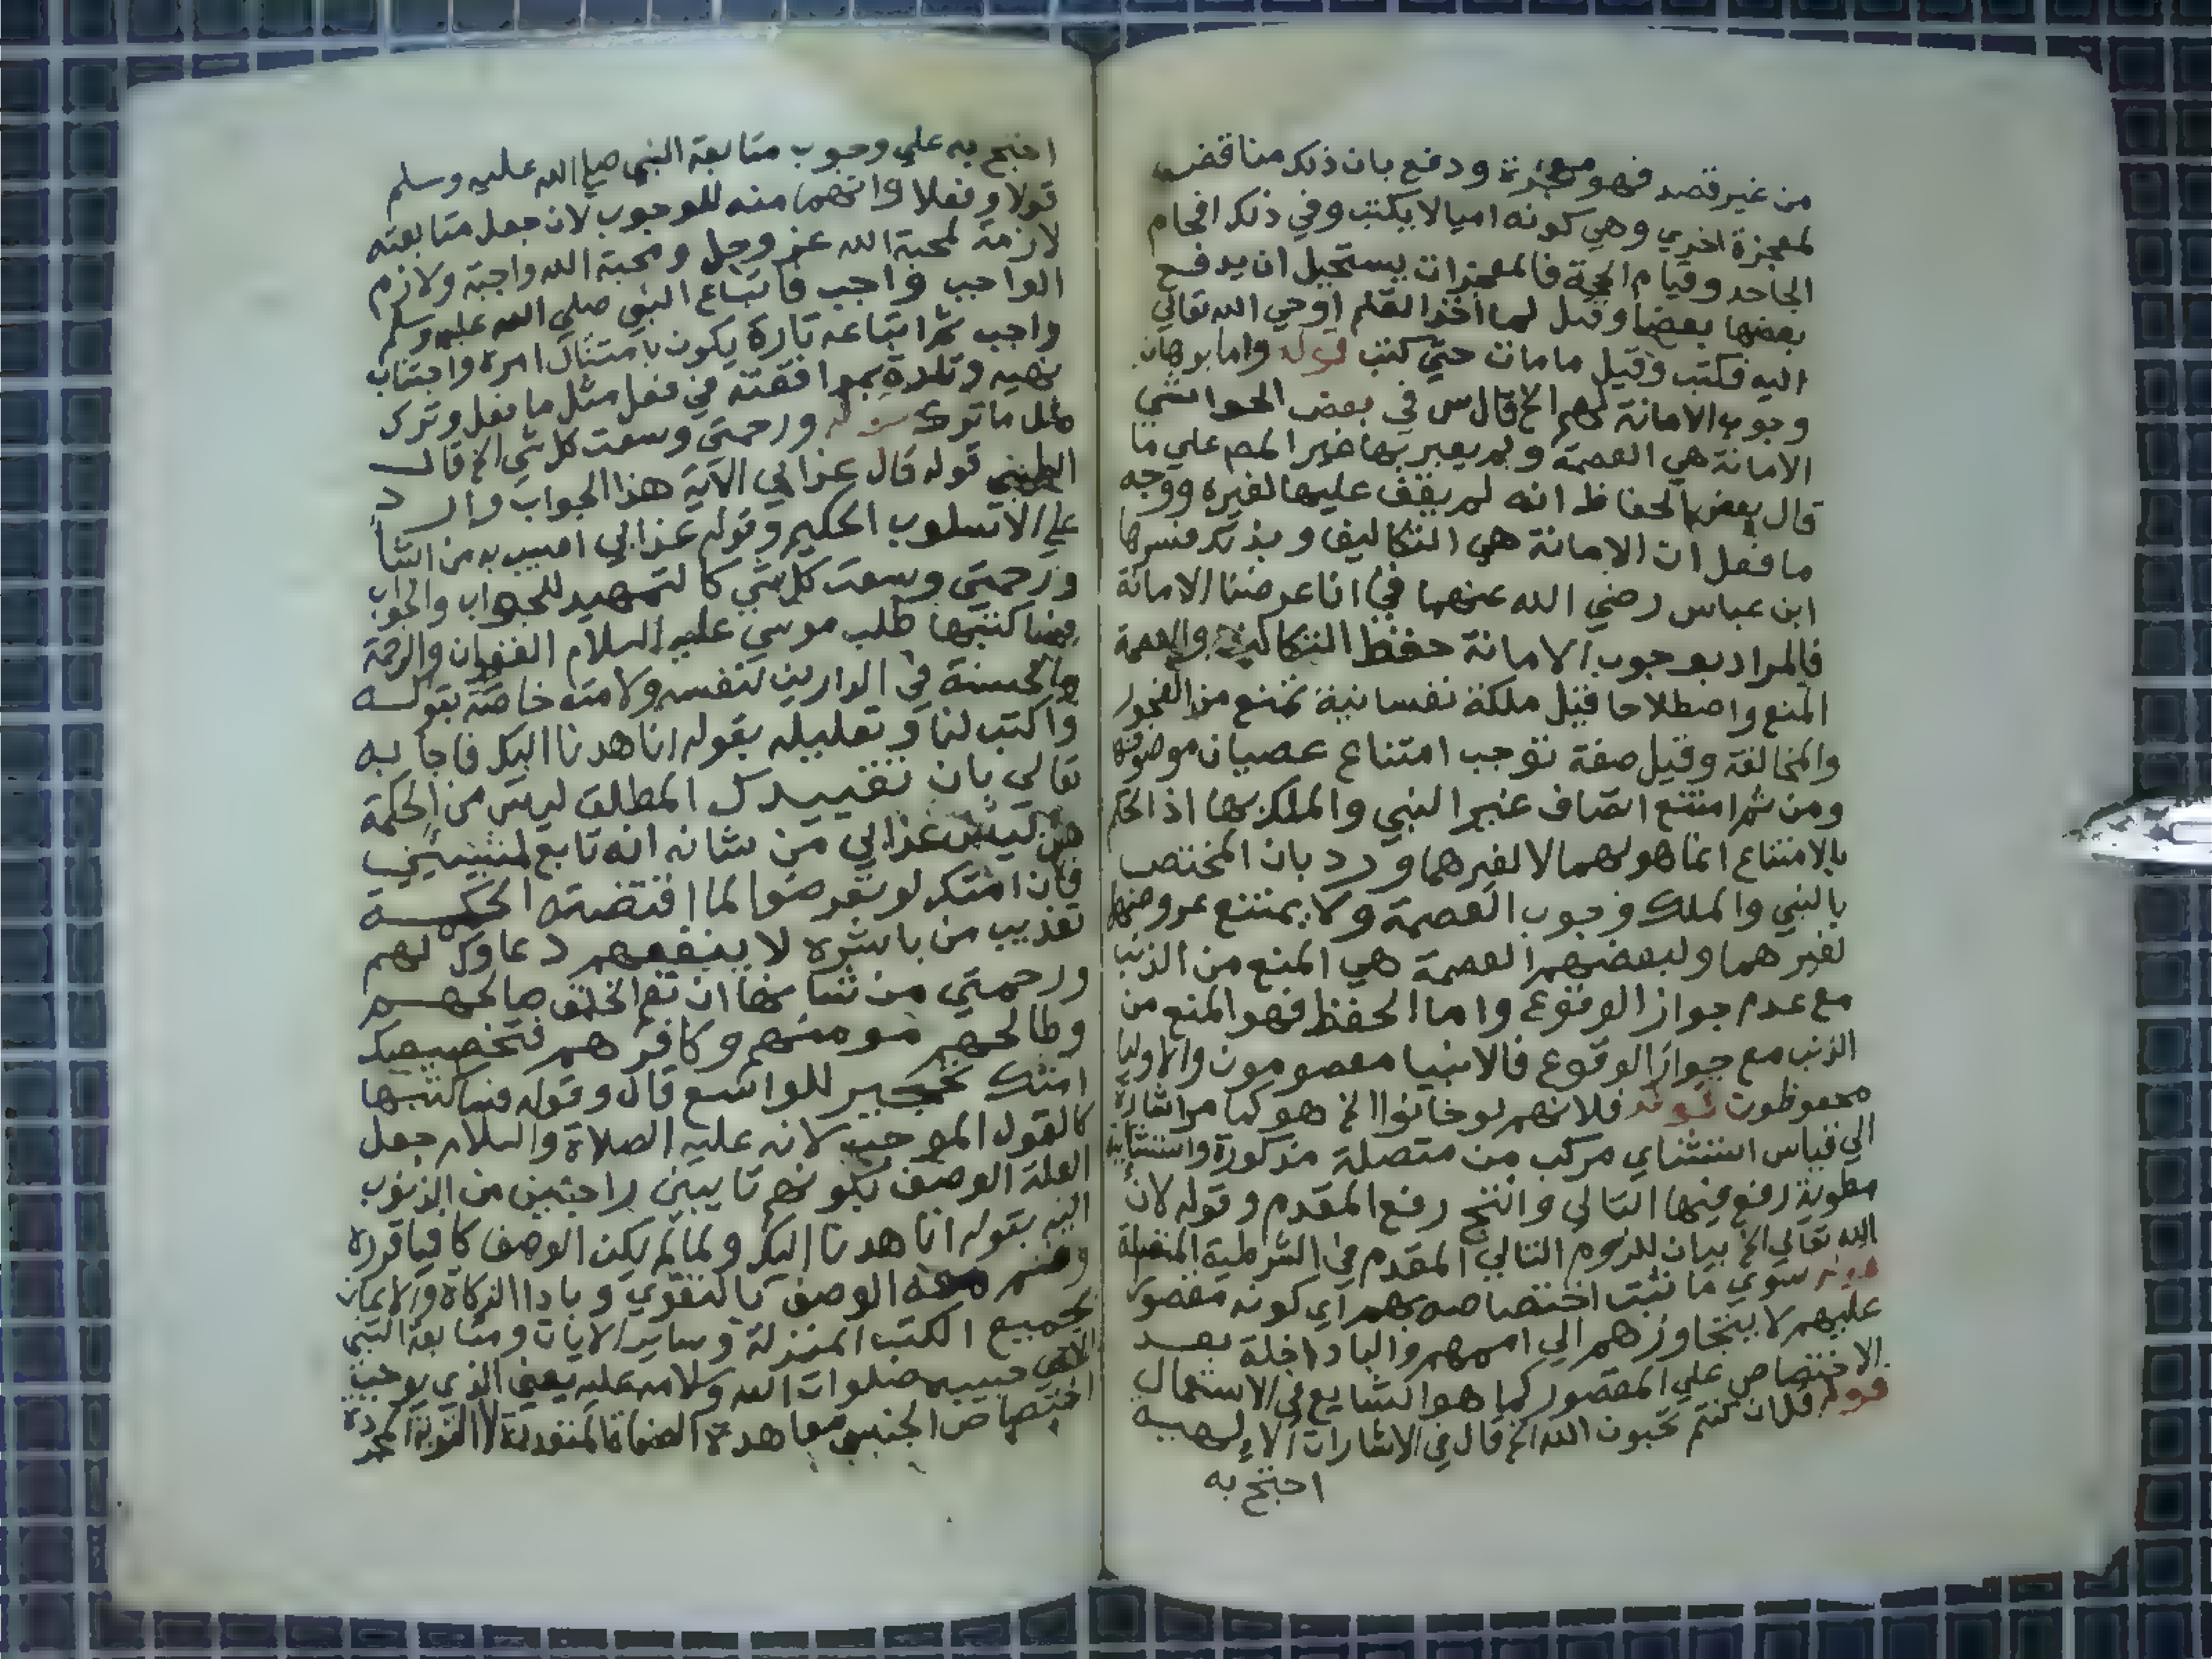 من غير قصد فهو معجزة ودفع بان ذلك مناقض
لمعجزة اخري وهي كونه اميا لا يكتب وفي ذلك افحام
الجاحد وقيام الحجة فالمعجزات يستحيل ان يدفع
بعضها بعضا وقيل لما اخذ القلم اوحي الله تعالي
اليه فكتب وقيل ما مات حتي كتب قوله واما برهان
وجوب الامانة لهم الخ قال س في بعض الحواشي
الامانة هي العصمة ولم يعبر بها غير المص علي ما
قال بعض الحفاظ انه لم يقف عليها لغيره ووجه
ما فعل ان الامانة هي التكاليف وبذلك فسرها
ابن عباس رضي الله عنهما في انا عرضنا الامانة
فالمراد بوجوب الامانة حفظ التكاليف والعصمة
المنع واصطلاحا قيل ملكة نفسانية تمنع من الفجور
والمخالفة وقيل صفة توجب امتناع عصيان موصوفه
ومن ثم امتنع اتصاف غير النبي والملك بها اذ الحكم
بالامتناع انما هو لهما لا لغيرهما ورد بان المختص
بالنبي والملك وجوب العصمة ولا يمتنع عروضها
لغيرهما ولبعضهم العصمة هي المنع من الذنب
مع عدم جواز الوقوع واما الحفظ فهو المنع من
الذنب مع جواز الوقوع فالانبيا معصومون والاوليا
محفوظون قوله فلانهم لو خانوا الخ هو كما مر اشارة
الي قياس استثناي مركب من متصلة مذكورة واستثنائية
مطوية رفع فيها التالي وانتج رفع المقدم وقوله لان
الله تعالي الخ بيان للزوم التالي المقدم في الشرطية المتصلة
قوله سوي ما ثبت اختصاصه بهم اي كونه مقصورا
عليهم لا يتجاوزهم الي اممهم والبا داخلة بعد
الاختصاص علي المقصور كما هو الشايع في الاستعمال
قوله قل ان كنتم تحبون الله الخ قال في الاشارات الالهيه
احتج به
احتج به علي وجوب متابعة النبي صلي الله عليه وسلم
قولا وفعلا وانهما منه للوجوب لان جعل متابعته
لازمة لمحبة الله عز وجل ومحبة الله واجبة ولازم
الواجب واجب فاتباع النبي صلي الله عليه وسلم
واجب ثم اتباعه تارة يكون بامتثال امره واجتناب
نهيه وتارة بموافقته في فعل مثل ما فعل وترك
مثل ما ترك قوله ورحمتي وسعت كل شي الخ قال
الطيبي قوله قال عذابي الاية هذا الجواب وارد
علي الاسلوب الحكيم وقوله عذابي اصيب به من اشا
ورحمتي وسعت كل شي كالتمهيد للجواب والجواب
فساكتبها طلب موسي عليه السلام الغفران والرحمة
والحسنة في الدارين لنفسه ولامته خاصة بقوله
واكتب لنا وتعليله بقوله انا هدنا اليك فاجابه
تعالي بان تقييدك المطلق ليس من الحكمة
عذابي من شانه انه تابع لمشيئتي
فان امتك لو تعرضوا لما اقتضته الحكمة
تعذيب من باشره لا ينفعهم دعاوك لهم
ورحمتي من شانها ان تعم الخلق صالحهم
وطالحهم مومنهم وكافرهم فتخصيصك
امتك تحجير للواسع قال وقوله فساكتبها
كالقول الموجب لانه عليه الصلاة والسلام جعل
العلة الوصف بكونهم تايبين راجعين من الذنوب
اليه بقوله انا هدنا اليك ولما لم يكن الوصف كافيا قرره
وضم معه الوصف بالتقوي وبادا الزكاة والايمان
بجميع الكتب المنزلة وساير الايات ومتابعة النبي
الامي حبيبه صلوات الله وسلامه عليه يعني الذي يوجب
اختصاص الجنسي معا هذه الصفات المتعددة لا التوبة المجردة